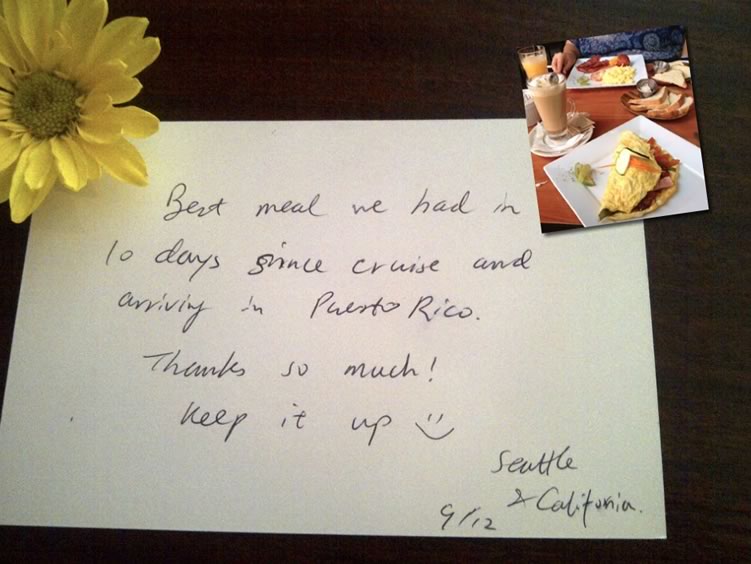 Best meal we had in
10 days since cruise and
arriving in Puerto Rico.
Thanks so much!
Keep it up
Seattle
& California.
9/12